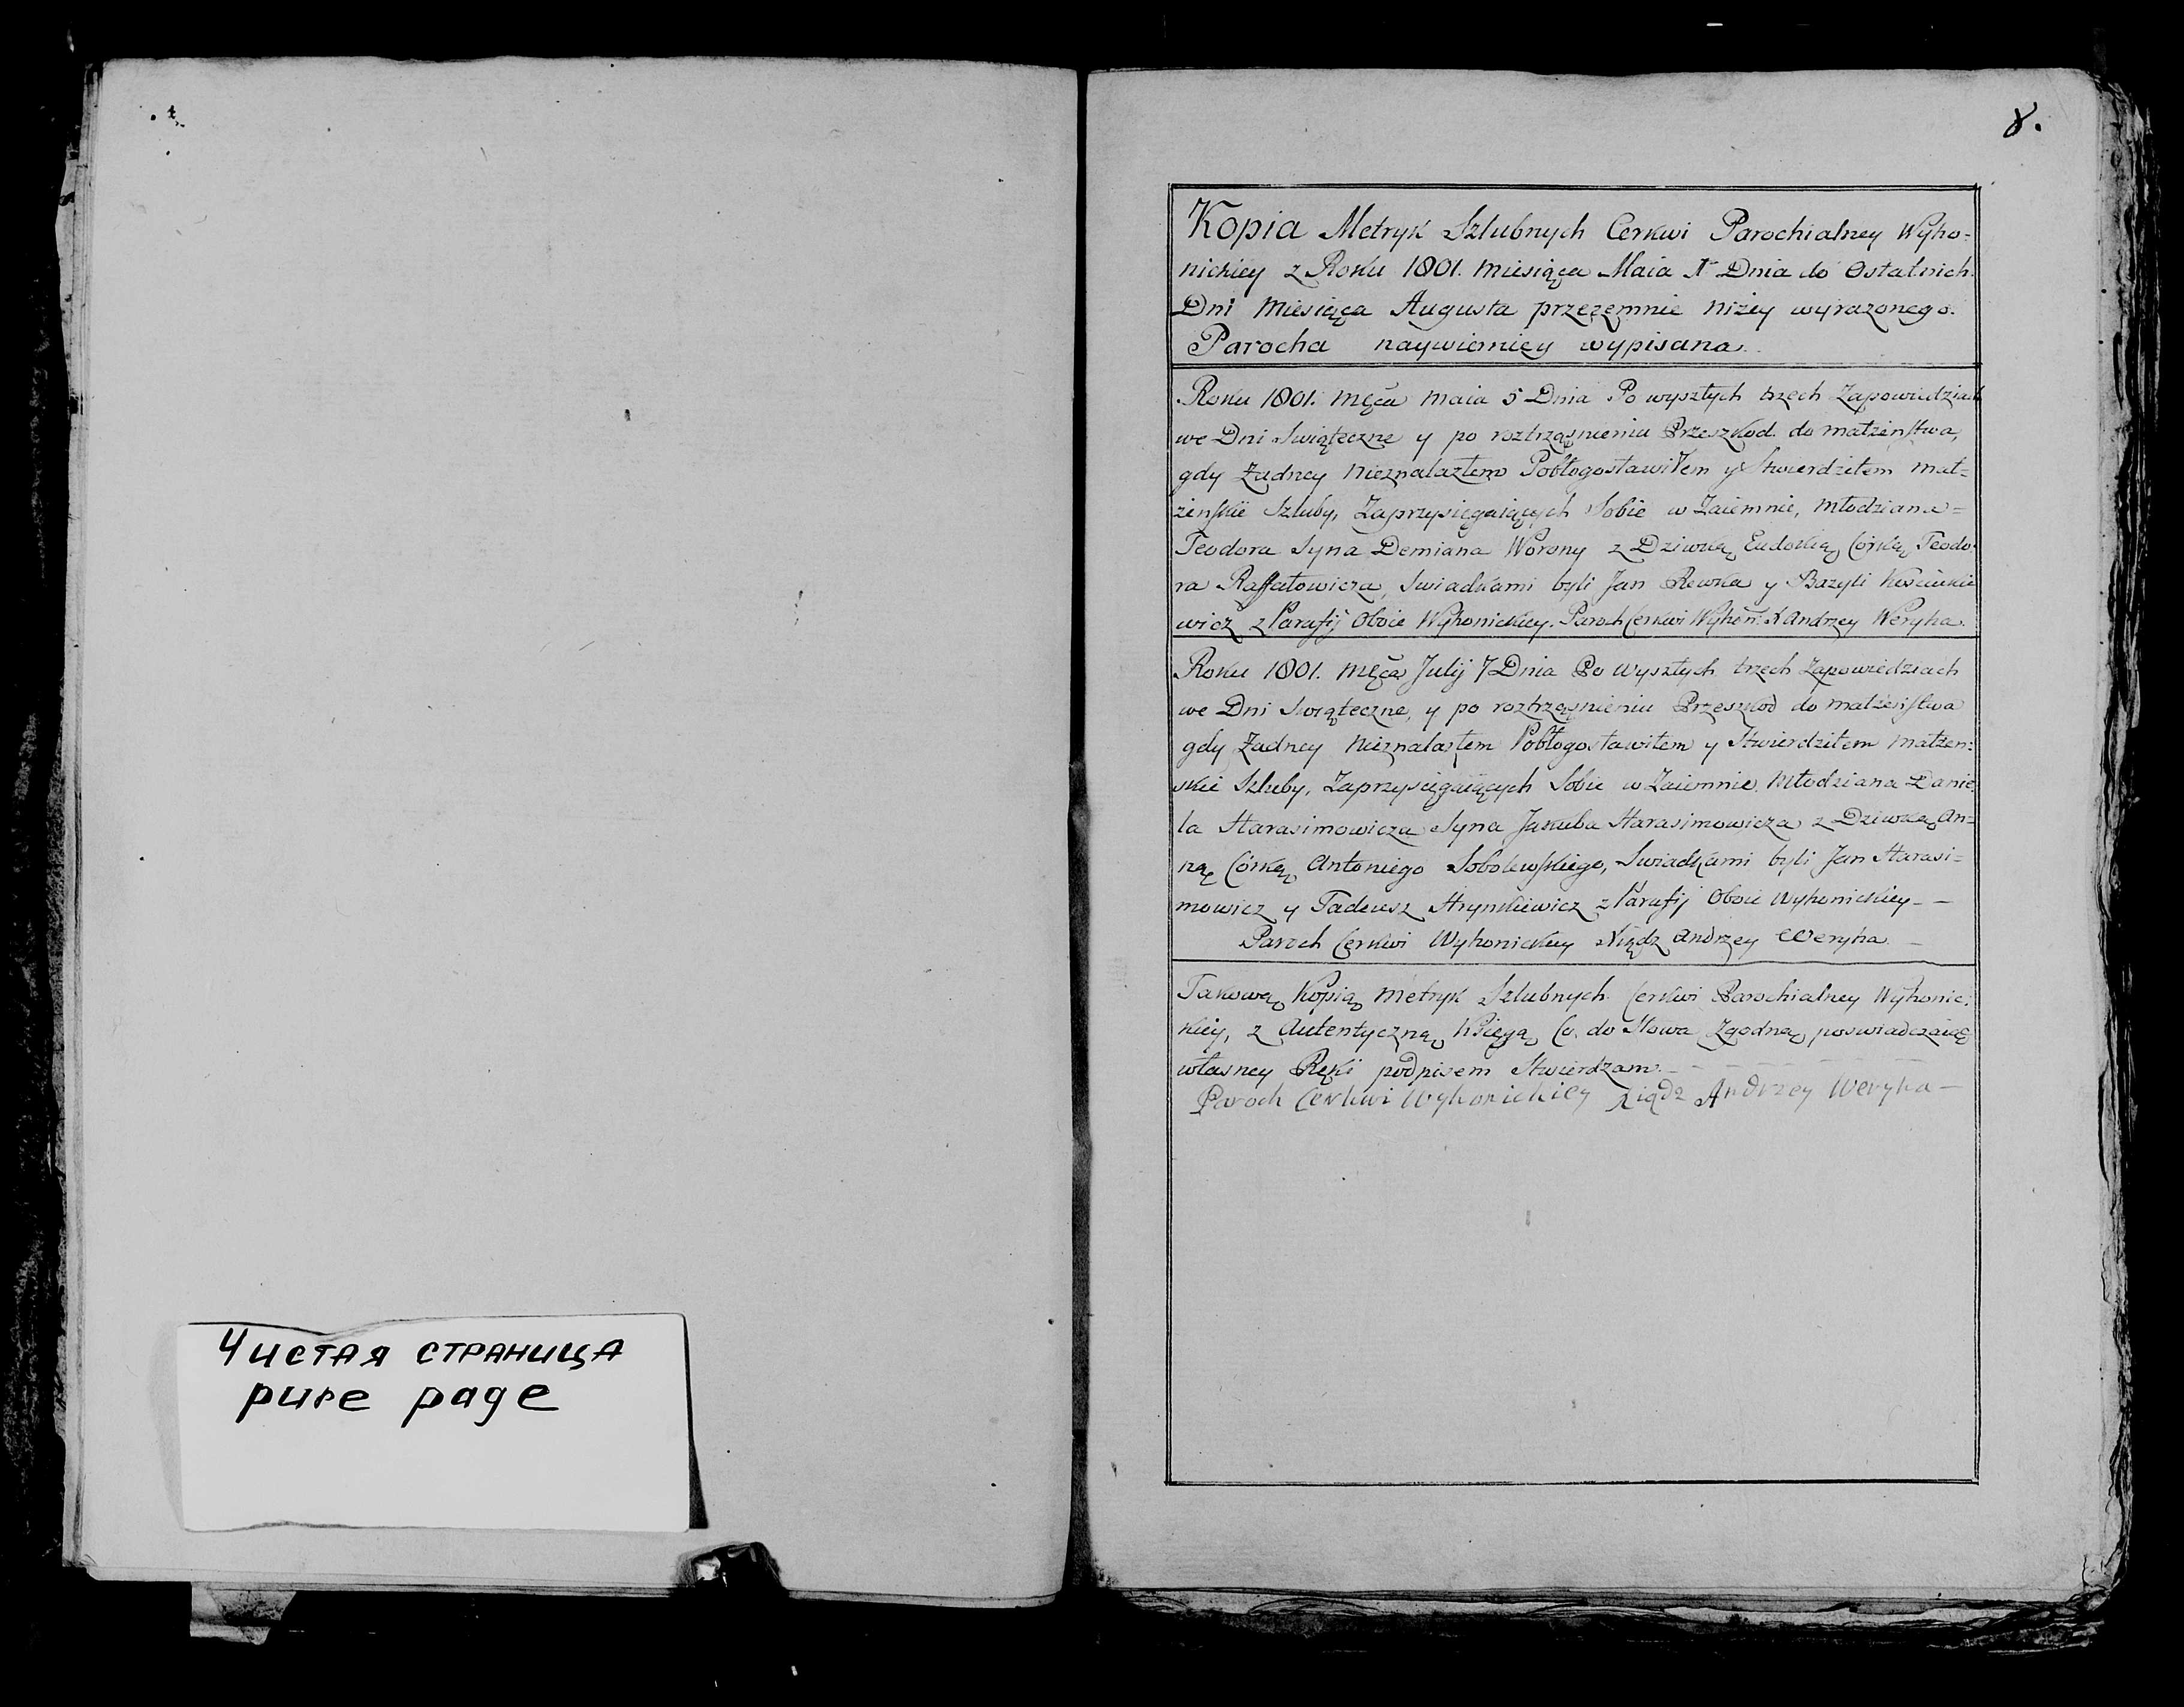 Чистая страница
pure page
8.
Kopia Metryk Szlubnych Cerkwi Parochialney Wyho-
nickiey z Roku 1801. Miesiąca Maia 1º Dnia do Ostatnich
Dni Miesiąca Augusta przezemnie niżey wyrazonego
Parocha naywierniey wypisana.
Roku 1801. Męca Maia 5 Dnia Po wyszłych trzech Zapowiedziach
we Dni Swiąteczne y po roztrząsnieniu Przeszkod do małżeństwa,
gdy Żadney nieznalazłem Pobłogosławiłem y Stwierdziłem mał-
żeńskie Szluby, Zaprzysięgaiących Sobie w Zaiemnie, Młodziana=
Teodora Syna Demiana Worony z Dziwką Eudoką Córką Teodo-
ra Raffałowicza, Swiadkami byli Jan Rewka y Bazyli
wicz z Parafij Oboie Wyhonickiey. Paroch Cerkwi Wyhon: X Andrzey Weryha.
Roku 1801. Męca Julij 7 Dnia Po wyszłych trzech Zapowiedziach
we Dni Swiąteczne, y po roztrząsnieniu Przeszkod do małżeństwa
gdy Żadney nieznalazłem Pobłogosławiłem y Stwierdziłem małżen=
skie Szluby, Zaprzysięgaiących Sobie w Zaiemnie. Młodziana Danie-
la Harasimowicza Syna Jakuba Harasimowicza z Dziwką An=
ną Córką Antoniego Sobolewskiego, Swiadkami byli Jan Harasi=
mowicz y Tadeusz Hrynkiewicz z Parafij Oboie Wyhonickiey--
Paroch Cerkwi Wyhonickiey Xiądz Andrzey Weryha.
Takową Kopią Metryk Szlubnych Cerkwi Parochialney Wyhonic-
kiey, z Autentyczną Księgą Co do Słowa Zgodną poswiadczaiąc
własney Ręki podpisem Stwierdzam.
Paroch Cerkwi Wyhonickiey Xiądz Andrzey Weryha